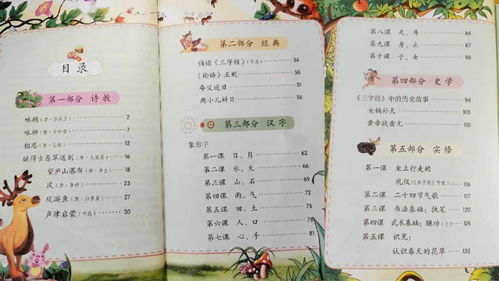 目录
第一部分 诗教
咏鹅（唐·骆宾王） 2
咏柳（唐·贺知章） 7
相思（唐·王维） 12
赋得古原草送别（唐·白居易） 15
望庐山瀑布（唐·李白） 18
风（唐·李峤） 23
观游鱼（唐·白居易） 27
声律启蒙（节选） 30
第二部分 经典
诵读《三字经》（节选） 54
《论语》五则 55
夸父逐日 56
两小儿辩日 58
第三部分 汉字
象形字
第一课 日、月 62
第二课 水、火 66
第三课 山、石 69
第四课 雨、气 72
第五课 田、土 75
第六课 人、口 78
第七课 心、手 81
第八课 足、耳 84
第九课 身、止 87
第十课 子、女 90
第四部分 史学
《三字经》中的历史故事 94
女娲补天
黄帝战蚩尤
第五部分 实修
第一课 坐立行走的
礼仪
第二课 二十四节气歌
第三课 书法基础：执笔
第四课 武术基础：腰功（上）
第五课 识见：
认识春天的花草 132